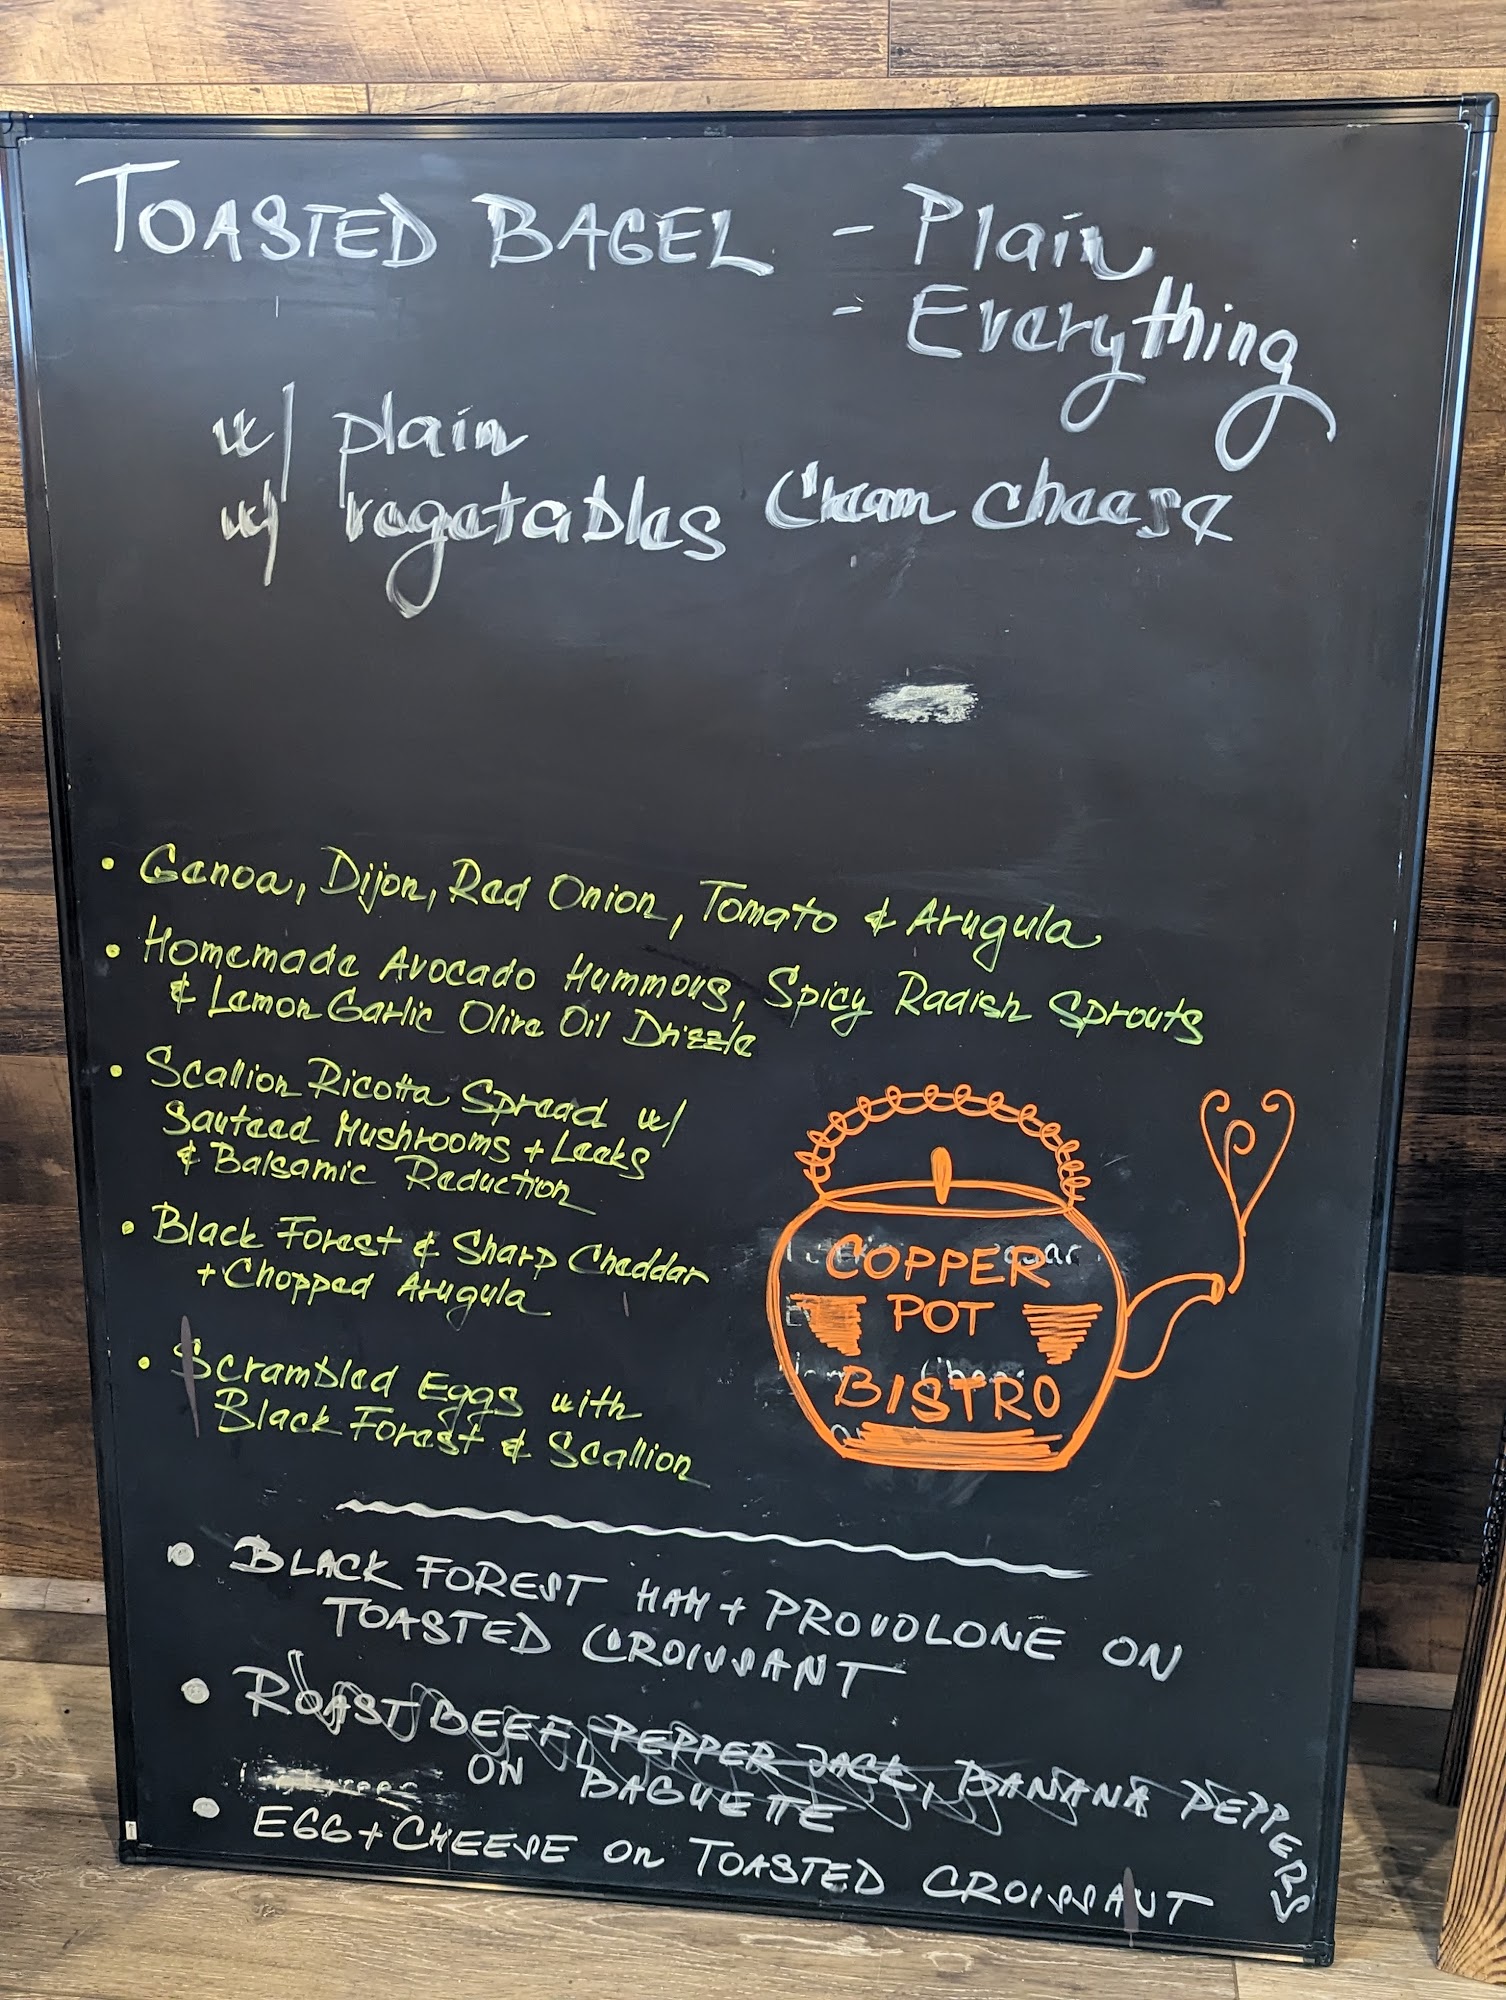 TOASTED BAGEL - Plain
- Everything
w/ plain
w/ vegetables Cream cheese
• Genoa, Dijon, Red Onion, Tomato & Arugula
• Homemade Avocado Hummous, Spicy Radish Sprouts
& Lemon Garlic Olive Oil Drizzle
• Scallion Ricotta Spread w/
Sauteed Mushrooms + Leeks
& Balsamic Reduction
• Black Forest & Sharp Cheddar
+ Chopped Arugula
• Scrambled Eggs with
Black Forest & Scallion
COPPER
POT
BISTRO
• BLACK FOREST HAM + PROVOLONE ON
TOASTED CROISSANT
• ROAST BEEF, PEPPER JACK, BANANA PEPPERS
ON BAGUETTE
• EGG + CHEESE On TOASTED CROISSANT